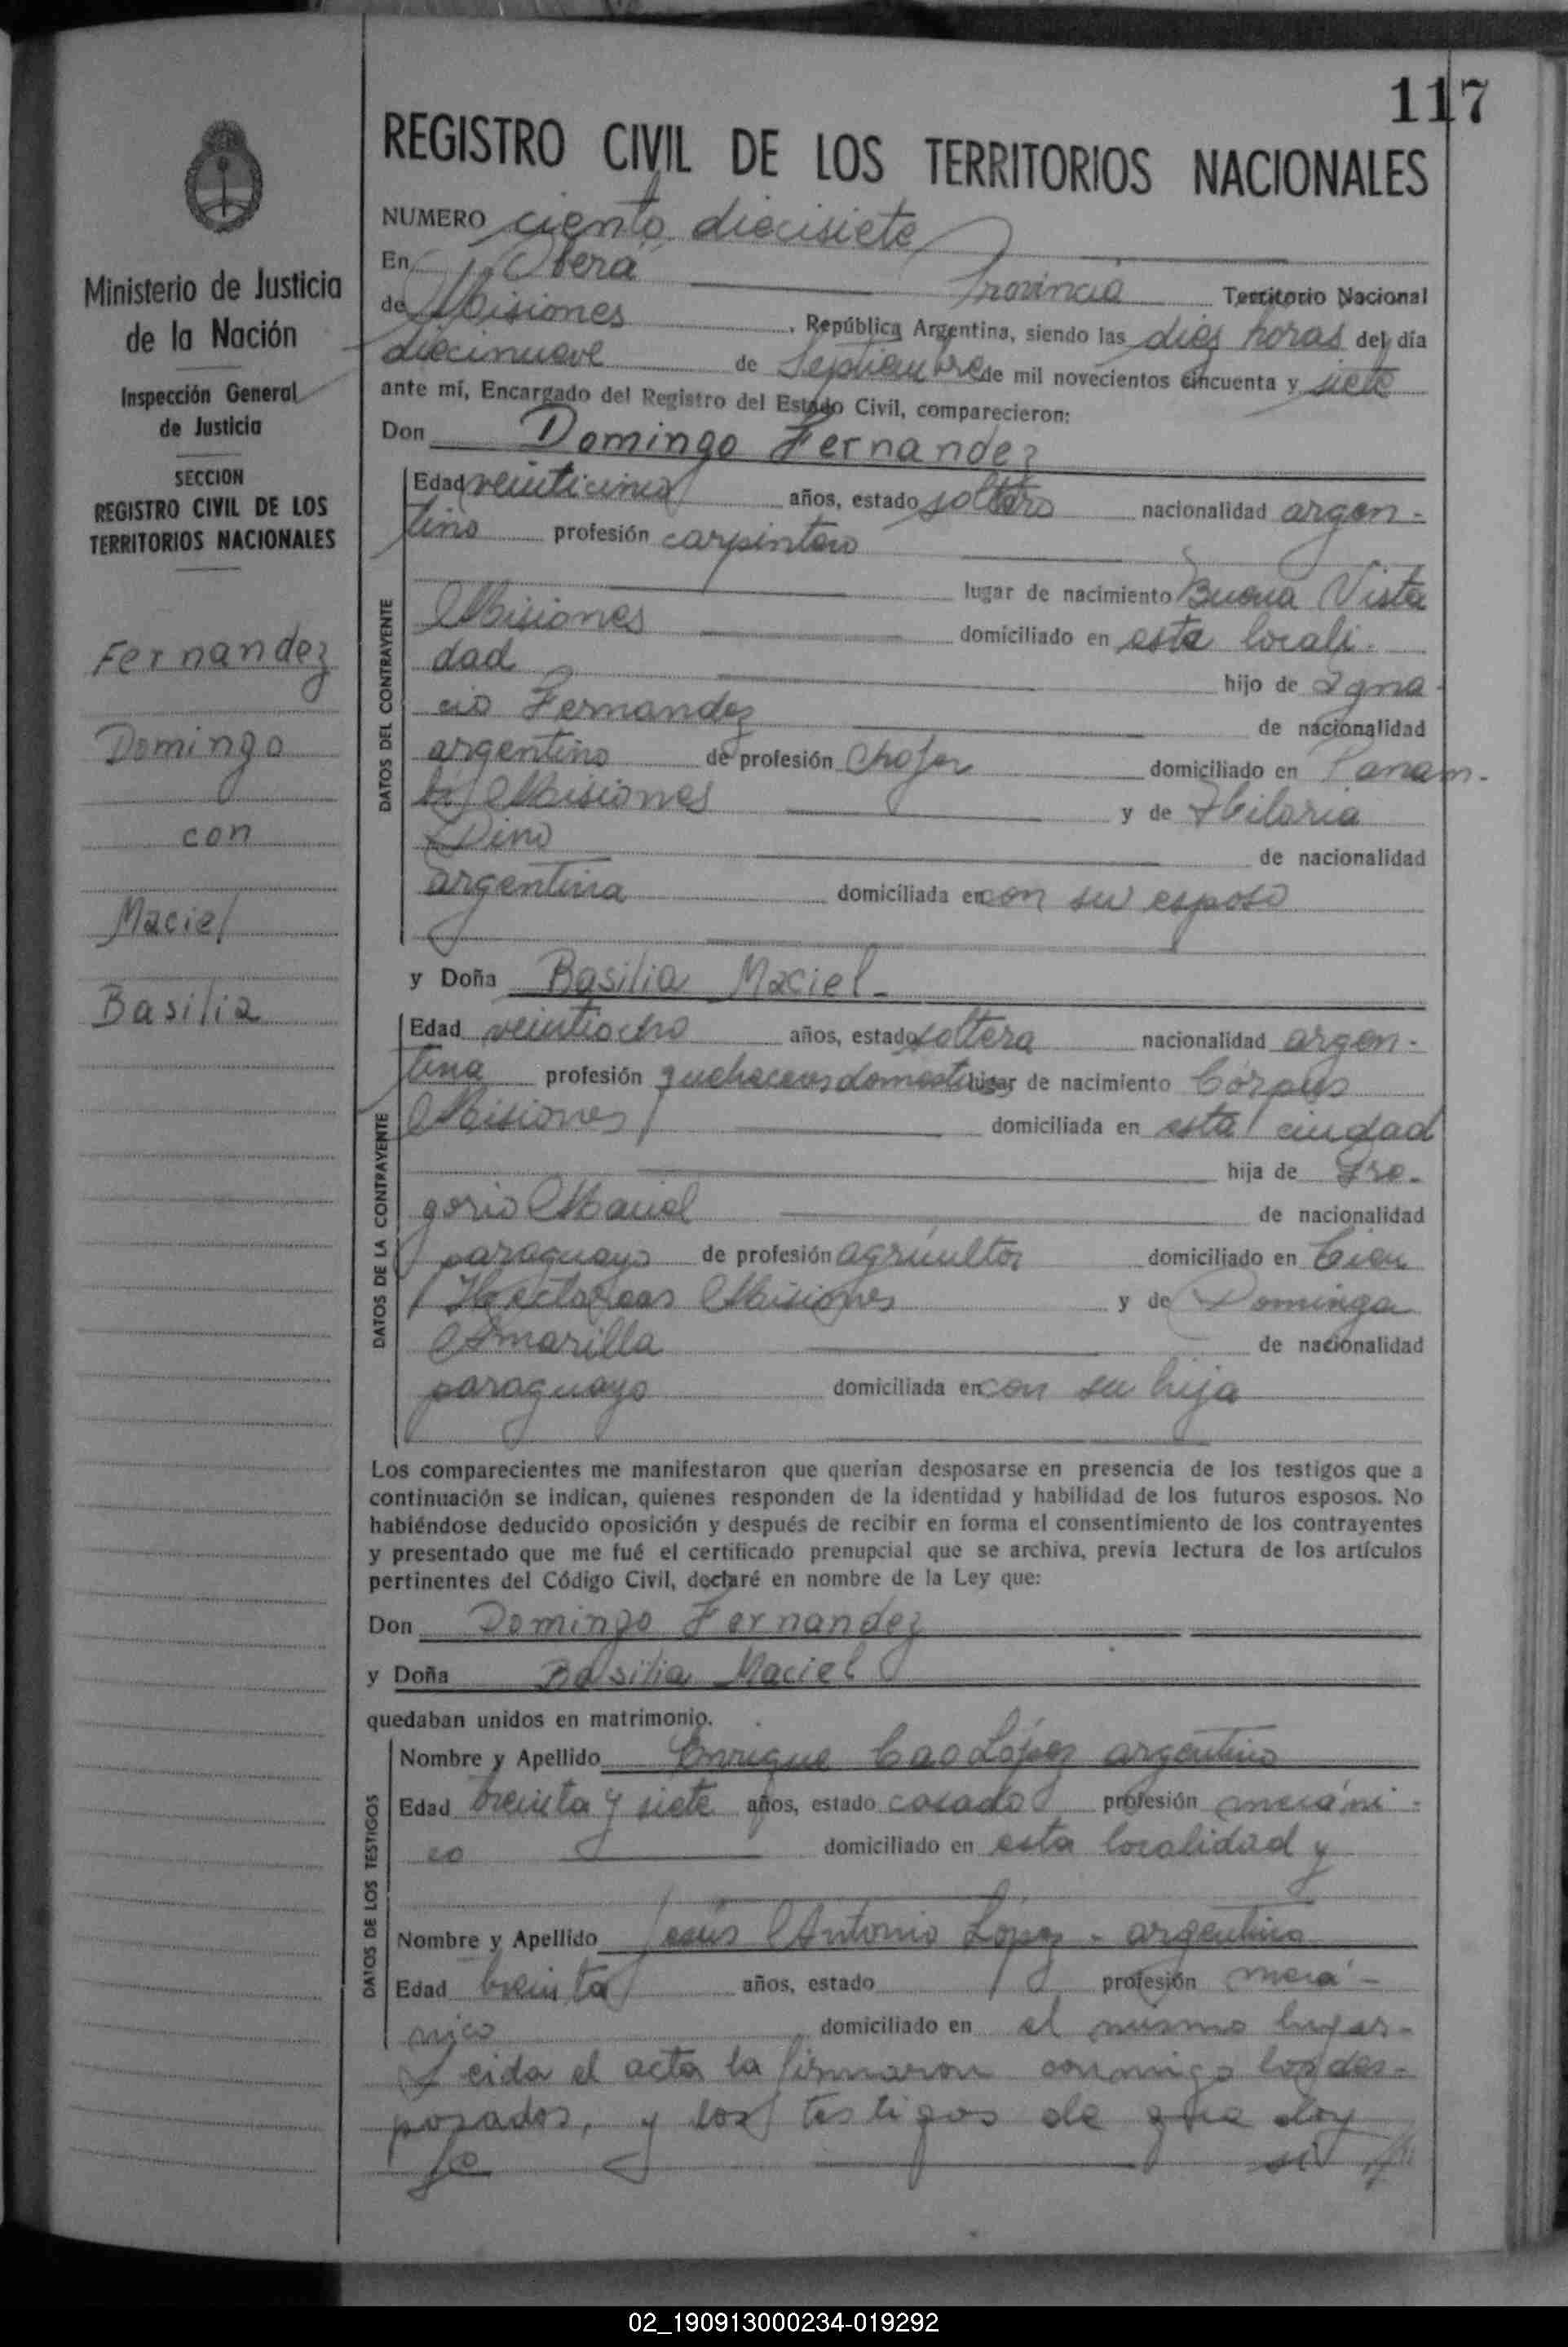 117
REGISTRO CIVIL DE LOS TERRITORIOS NACIONALES
Ministerio de Justicia
de la Nación
Inspección General
de Justicia
SECCION
REGISTRO CIVIL DE LOS
TERRITORIOS NACIONALES
Fernandez
Domingo
con
Maciel
Basilia
NUMERO ciento diecisiete
En Oberá
de Misiones Provincia Territorio Nacional
, República Argentina, siendo las diez horas del día
diecinueve de Septiembre de mil novecientos cincuenta y siete
ante mí, Encargado del Registro del Estado Civil, comparecieron:
Don Domingo Fernandez
DATOS DEL CONTRAYENTE
Edad veinticinco años, estado soltero nacionalidad argen-
tino profesión carpintero
lugar de nacimiento Buena Vista
Misiones domiciliado en esta locali-
dad hijo de Igna-
cio Fernandez de nacionalidad
argentino de profesión Chofer domiciliado en Panam-
bí Misiones y de Hilaria
Pino de nacionalidad
argentina domiciliada en con su esposo
y Doña Basilia Maciel-
DATOS DE LA CONTRAYENTE
Edad veintiocho años, estado soltera nacionalidad argen-
tina profesión quehaceres domesticos lugar de nacimiento Córpus
Misiones domiciliada en esta ciudad
hija de Gre-
gorio Maciel de nacionalidad
paraguayo de profesión agricultor domiciliado en Cien
Hectareas Misiones y de Dominga
Amarilla de nacionalidad
paraguaya domiciliada en con su hija
Los comparecientes me manifestaron que querían desposarse en presencia de los testigos que a
continuación se indican, quienes responden de la identidad y habilidad de los futuros esposos. No
habiéndose deducido oposición y después de recibir en forma el consentimiento de los contrayentes
y presentado que me fué el certificado prenupcial que se archiva, previa lectura de los artículos
pertinentes del Código Civil, declaré en nombre de la Ley que:
Don Domingo Fernandez
y Doña Basilia Maciel
quedaban unidos en matrimonio.
DATOS DE LOS TESTIGOS
Nombre y Apellido Enrique Cao López argentino
Edad treinta y siete años, estado casado profesión mecáni-
co domiciliado en esta localidad y
Nombre y Apellido Jesús Antonio López - argentino
Edad treinta años, estado profesión mecá-
nico domiciliado en el mismo lugar-
Leida el acta la firmaron conmigo los des-
posados, y los testigos de que doy
fe
02_190913000234-019292